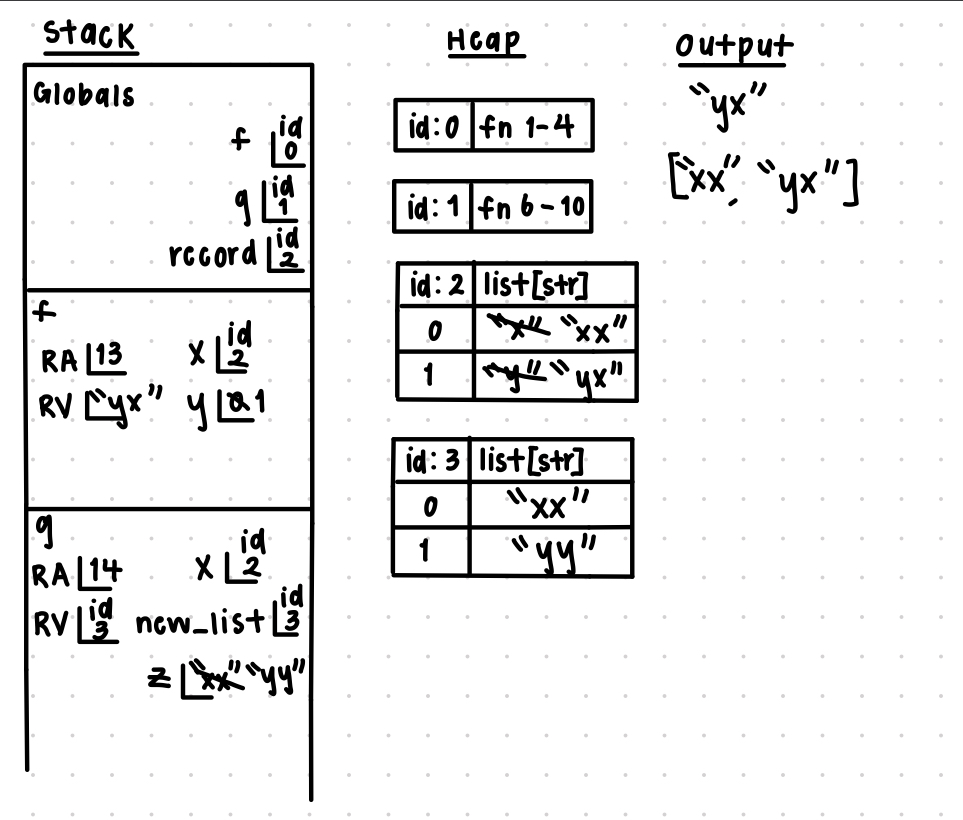 Stack
Globals
f id 0
g id 1
record id 2
f
RA 13 x id 2
RV "yx" y 0 1
g
RA 14 x id 2
RV id 3 new_list id 3
z "xx" "yy"
Heap
id:0 fn 1-4
id:1 fn 6-10
id:2 list[str]
0 "x" "xx"
1 "y" "yx"
id:3 list[str]
0 "xx"
1 "yy"
Output
"yx"
["xx", "yx"]